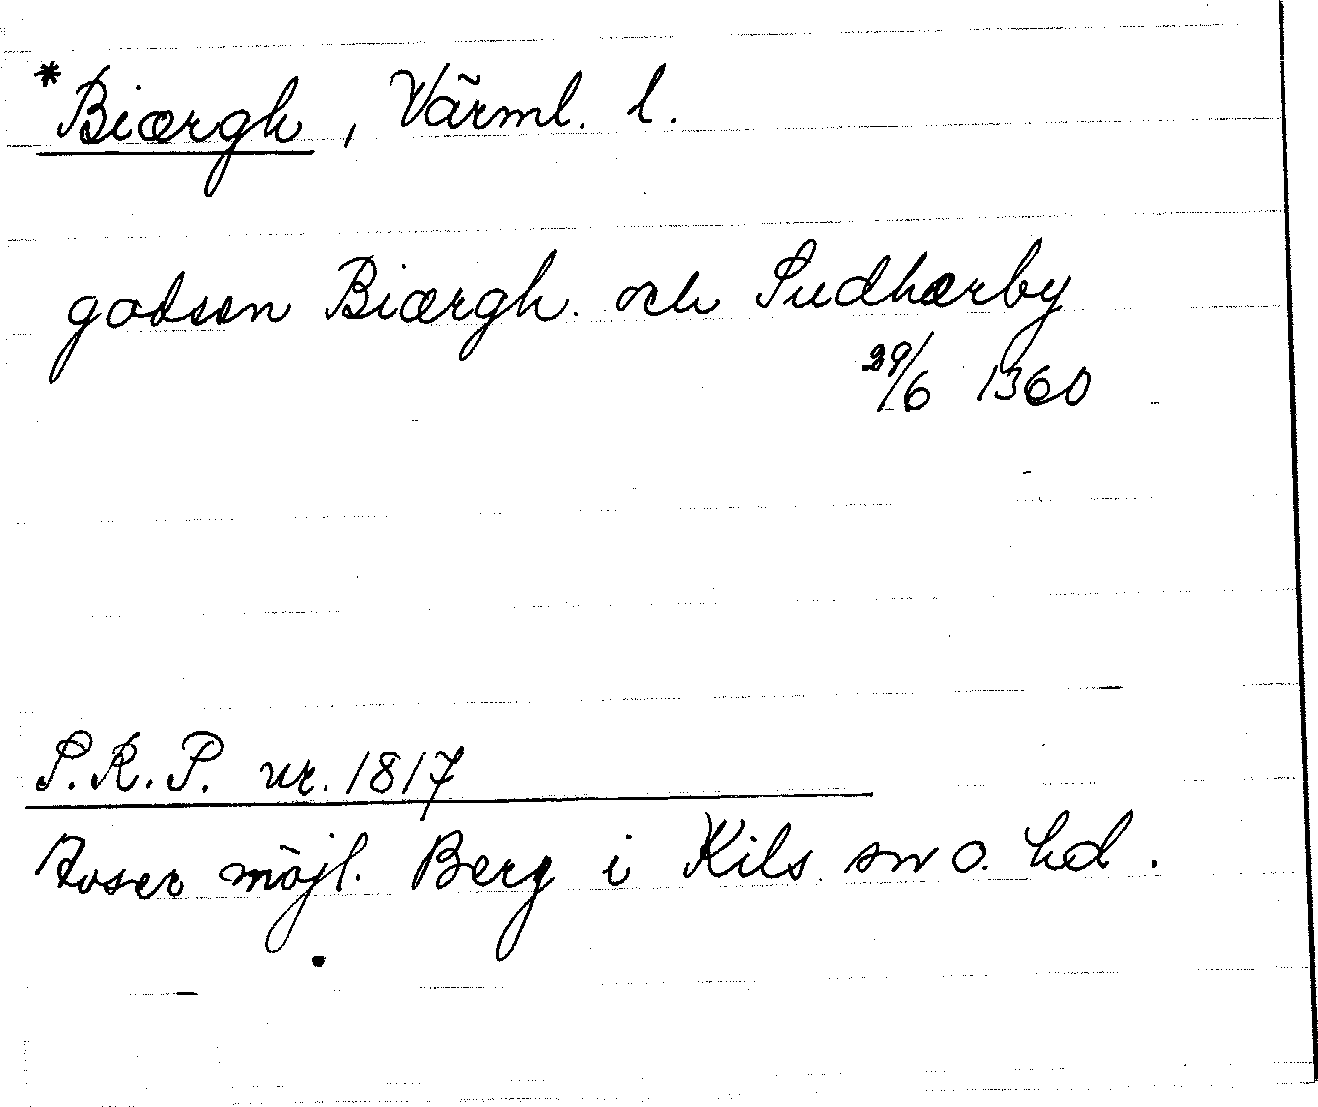 *Biærgh, Värml. l.
godsen Biærgh och Sudhærby
29/6 1360
S.R.P. nr. 1817
Avser möjl. Berg i Kils sn o. hd.